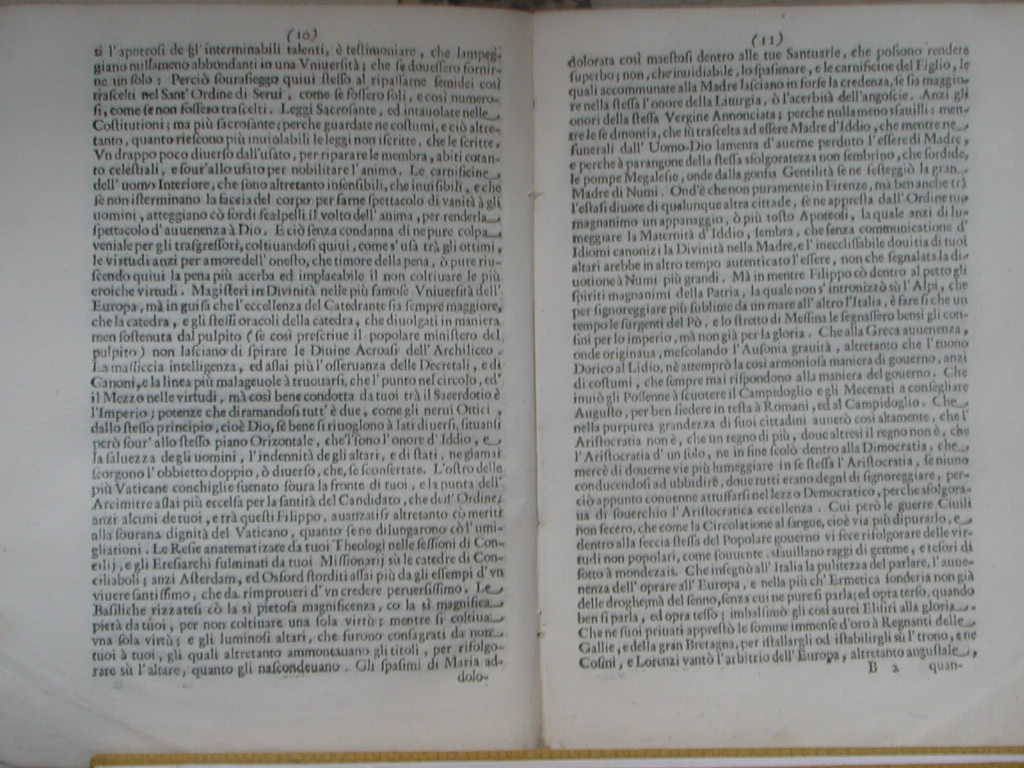 (10)
ti l'apoteosi de gl'interminabili talenti, è testimoniare, che lampeg-
giano nullameno abbondanti in una Vniuersità; che se douessero fornir-
ne un solo: Perciò sourasieggo quiui stesso al ripassarne semidei così
trascelti nel Sant'Ordine di Serui, come se fossero soli, e così numero-
si, come se non fossero trascelti. Leggi Sacrosante, ed intauolate nelle
Costitutioni; ma più sacrosante; perche guardate ne costumi, e ciò altre-
tanto, quanto riescono più inuiolabili le leggi non iscritte, che le scritte.
Vn drappo poco diuerso dall'usato, per riparare le membra, abiti cotan-
to celestiali, e sour'allo usato per nobilitare l'animo. Le carnificine
dell'uomo Interiore, che sono altretanto insensibili, che inuisibili, e che
se non isterminano la faccia del corpo per farne spettacolo di vanità à gli
uomini, atteggiano cò sordi scalpelli il volto dell'anima, per renderla
spettacolo d'auuenenza à Dio. E ciò senza condanna di ne pure colpa
veniale per gli trasgressori, coltiuandosi quiui, come s'usa trà gli ottimi,
le virtudi anzi per amore dell'onesto, che timore della pena, ò pure riu-
scendo quiui la pena più acerba ed implacabile il non coltiuare le più
eroiche virtudi. Magisteri in Diuinità nelle più famose Vniuersità dell'
Europa, mà in guisa che l'eccellenza del Catedrante sia sempre maggiore,
che la catedra, e gli stessi oracoli della catedra, che diuolgati in maniera
men sostenuta dal pulpito (se così prescriue il popolare ministero del
pulpito) non lasciano di spirare le Diuine Acroasi dell'Archiliceo.
La massiccia intelligenza, ed assai più l'osseruanza delle Decretali, e di
Canoni, e la linea più malageuole à truouarsi, che l'punto nel circolo, ed'
il Mezzo nelle virtudi, mà così bene condotta da tuoi trà il Sacerdotio è
l'Imperio; potenze che diramandosi tutt'è due, come gli nerui Ottici,
dallo stesso principio, cioè Dio, se bene si riuoglono à lati diuersi, situansi
però sour'allo stesso piano Orizontale, che l'sono l'onore d'Iddio, e
la saluezza degli uomini, l'indennità degli altari, e di stati, ne giamai
scorgono l'obbietto doppio, ò diuerso, che, se sconsertate. L'ostro delle
più Vaticane conchiglie suenato soura la fronte di tuoi, e la punta dell'
Arcimitre assai più eccelsa per la santità del Candidato, che dell'Ordine;
anzi alcuni de tuoi, e trà questi Filippo, auanzatisi altretanto cò meriti
alla sourana dignità del Vaticano, quanto se ne dilungarono cò l'umi-
gliationi. Le Resie anatematizate da tuoi Theologi nelle sessioni di Con-
cilij, e gli Eresiarchi fulminati da tuoi Missionarij sù le catedre di Con-
ciliaboli; anzi Asterdam, ed Osford storditi assai più da gli essempi d'vn
viuere santissimo, che da rimproueri d'vn credere peruersissimo. Le
Basiliche rizzatesi cò la sì pietosa magnificenza, cò la sì magnifica
pietà da tuoi, per non coltiuare una sola virtù; mentre si coltiua
vna sola virtù; e gli luminosi altari, che furono consagrati da non
tuoi à tuoi, gli quali altretanto ammontauano gli titoli, per rifolgo-
rare sù l'altare, quanto gli nascondeuano. Gli spasimi di Maria ad-
dolo-
(11)
dolorata così maestosi dentro alle tue Santuarie, che possono rendere
superbo; non, che inuidiabile, lo spasimare, e le carnificine del Figlio, le
quali accommunate alla Madre lasciano in forse la credenza, se sia maggio-
re nella stessa l'onore della Liturgia, ò l'acerbità dell'angoscie. Anzi gli
onori della stessa Vergine Annonciata; perche nulla meno sfauilli: men-
tre le se dimostra, che fù trascelta ad essere Madre d'Iddio, che mentre ne
funerali dall'Uomo-Dio lamenta d'auerne perduto l'essere di Madre,
e perche à parangone della stessa sfolgoratezza non sembrino, che sordide,
le pompe Megalesie, onde dalla gonfia Gentilità se ne festeggiò la gran
Madre di Numi. Ond'è che non puramente in Firenze, mà ben anche trà
l'estasi diuote di qualunque altra cittade, se ne appresta dall'Ordine tuo
magnanimo un appanaggio, ò più tosto Apoteosi, la quale anzi di lu-
meggiare la Maternità d'Iddio, sembra, che senza communicatione d'
Idiomi canonizi la Diuinità nella Madre, e l'ineclissabile douitia di tuoi
altari arebbe in altro tempo autenticato l'essere, non che segnalata la di-
uotione à Numi più grandi. Mà in mentre Filippo cò dentro al petto gli
spiriti magnanimi della Patria, la quale non s'intronizzò sù l'Alpi, che
per signoreggiare più sublime da un mare all'altro l'Italia, è fare sì che un
tempo le surgenti del Pò, e lo stretto di Messina le segnassero bensì gli con-
fini per lo imperio, mà non già per la gloria. Che alla Greca auuenenza,
onde originaua, mescolando l'Ausonia grauità, altretanto che l'tuono
Dorico al Lidio, nè attemprò la così armoniosa maniera di gouerno, anzi
di costumi, che sempre mai rispondono alla maniera del gouerno. Che
inuiò gli Possenne à scuotere il Campidoglio e gli Mecenati a consegliare
Augusto, per ben siedere in testa à Romani, ed al Campidoglio. Che
nella purpurea grandezza di suoi cittadini auuerò così altamente, che l'
Aristocratia non è, che un regno di più, doue altresì il regno non è, che
l'Aristocratia d'un solo, ne in fine scolò dentro alla Dimocratia, che
mercè di douerne vie più lumeggiare in se stessa l'Aristocratia, se niuno
conducendosi ad ubbidire, doue tutti erano degni di signoreggiare, per-
ciò appunto conuenne attuffarsi nel lezzo Democratico, perche sfolgora-
ua di souerchio l'Aristocratica eccellenza. Cui però le guerre Ciuili
non fecero, che come la Circolatione al sangue, cioè via più dipurarlo, e
dentro alla feccia stessa del Popolare gouerno vi fece rifolgorare delle vir-
tudi non popolari, come souuente sfauillano raggi di gemme, e tesori di
sotto à mondezai. Che insegnò all'Italia la pulitezza del parlare, l'auue-
nenza dell'oprare all'Europa, e nella più ch'Ermetica fonderia non già
delle droghe, mà del senno, senza cui ne pure si parla; ed opra terso, quando
ben si parla, ed opra terso; imbalsimò gli così aurei Elisiri alla gloria.
Che ne suoi priuati apprestò le somme immense d'oro à Regnanti delle
Gallie, e della gran Bretagna, per istallargli od istabilirgli sù l'trono, e ne
Cosini, e Lorenzi vantò l'arbitrio dell'Europa, altretanto augustale,
B 2 quan-